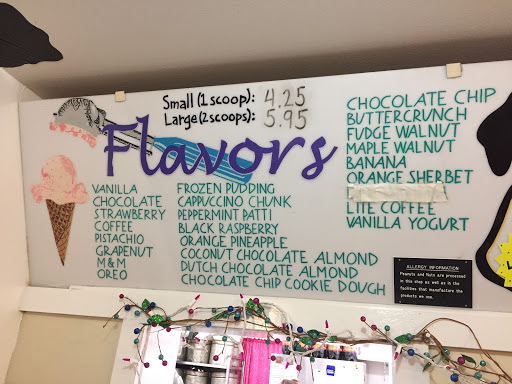 Small (1 scoop): 4.25
Large (2 scoops): 5.95
Flavors
VANILLA
CHOCOLATE
STRAWBERRY
COFFEE
PISTACHIO
GRAPENUT
M&M
OREO
FROZEN PUDDING
CAPPUCINO CHUNK
PEPPERMINT PATTI
BLACK RASPBERRY
ORANGE PINEAPPLE
COCONUT CHOCOLATE ALMOND
DUTCH CHOCOLATE ALMOND
CHOCOLATE CHIP COOKIE DOUGH
CHOCOLATE CHIP
BUTTERCRUNCH
FUDGE WALNUT
MAPLE WALNUT
BANANA
ORANGE SHERBET
LITE COFFEE
VANILLA YOGURT
ALLERGY INFORMATION
Peanuts and Nuts are processed
in this shop as well as in the
facilities that manufacture the
products we use.